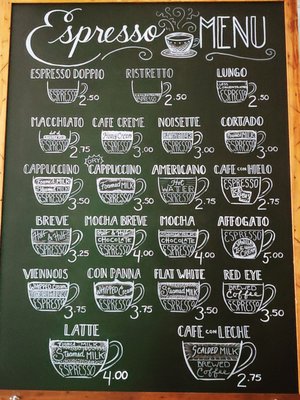 Espresso MENU
ESPRESSO DOPPIO
ESPRESSO
2.50
RISTRETTO
ESPRESSO
2.50
LUNGO
ESPRESSO
2.50
MACCHIATO
ESPRESSO
2.75
CAFE CREME
Heavy Cream
ESPRESSO
3
NOISETTE
ESPRESSO
3
CORTADO
ESPRESSO
3
CAPPUCCINO
Steamed MILK
ESPRESSO
3.50
CAPPUCCINO
Foamed MILK
ESPRESSO
3.50
AMERICANO
Hot
WATER
ESPRESSO
2.50
CAFE CON HIELO
ESPRESSO
2.50
BREVE
Half & Half
ESPRESSO
3.25
MOCHA BREVE
Half & Half
CHOCOLATE
ESPRESSO
4.25
MOCHA
Steamed MILK
CHOCOLATE
ESPRESSO
4.00
AFFOGATO
ESPRESSO
5.00
VIENNOIS
WHIPPED Cream
ESPRESSO
3.75
CON PANNA
WHIPPED Cream
ESPRESSO
2.75
FLAT WHITE
Steamed MILK
ESPRESSO
3.50
RED EYE
BREWED
Coffee
ESPRESSO
3.50
LATTE
Foamed MILK
Steamed MILK
ESPRESSO
4.00
CAFE CON LECHE
SCALDED MILK
BREWED
Coffee
2.75